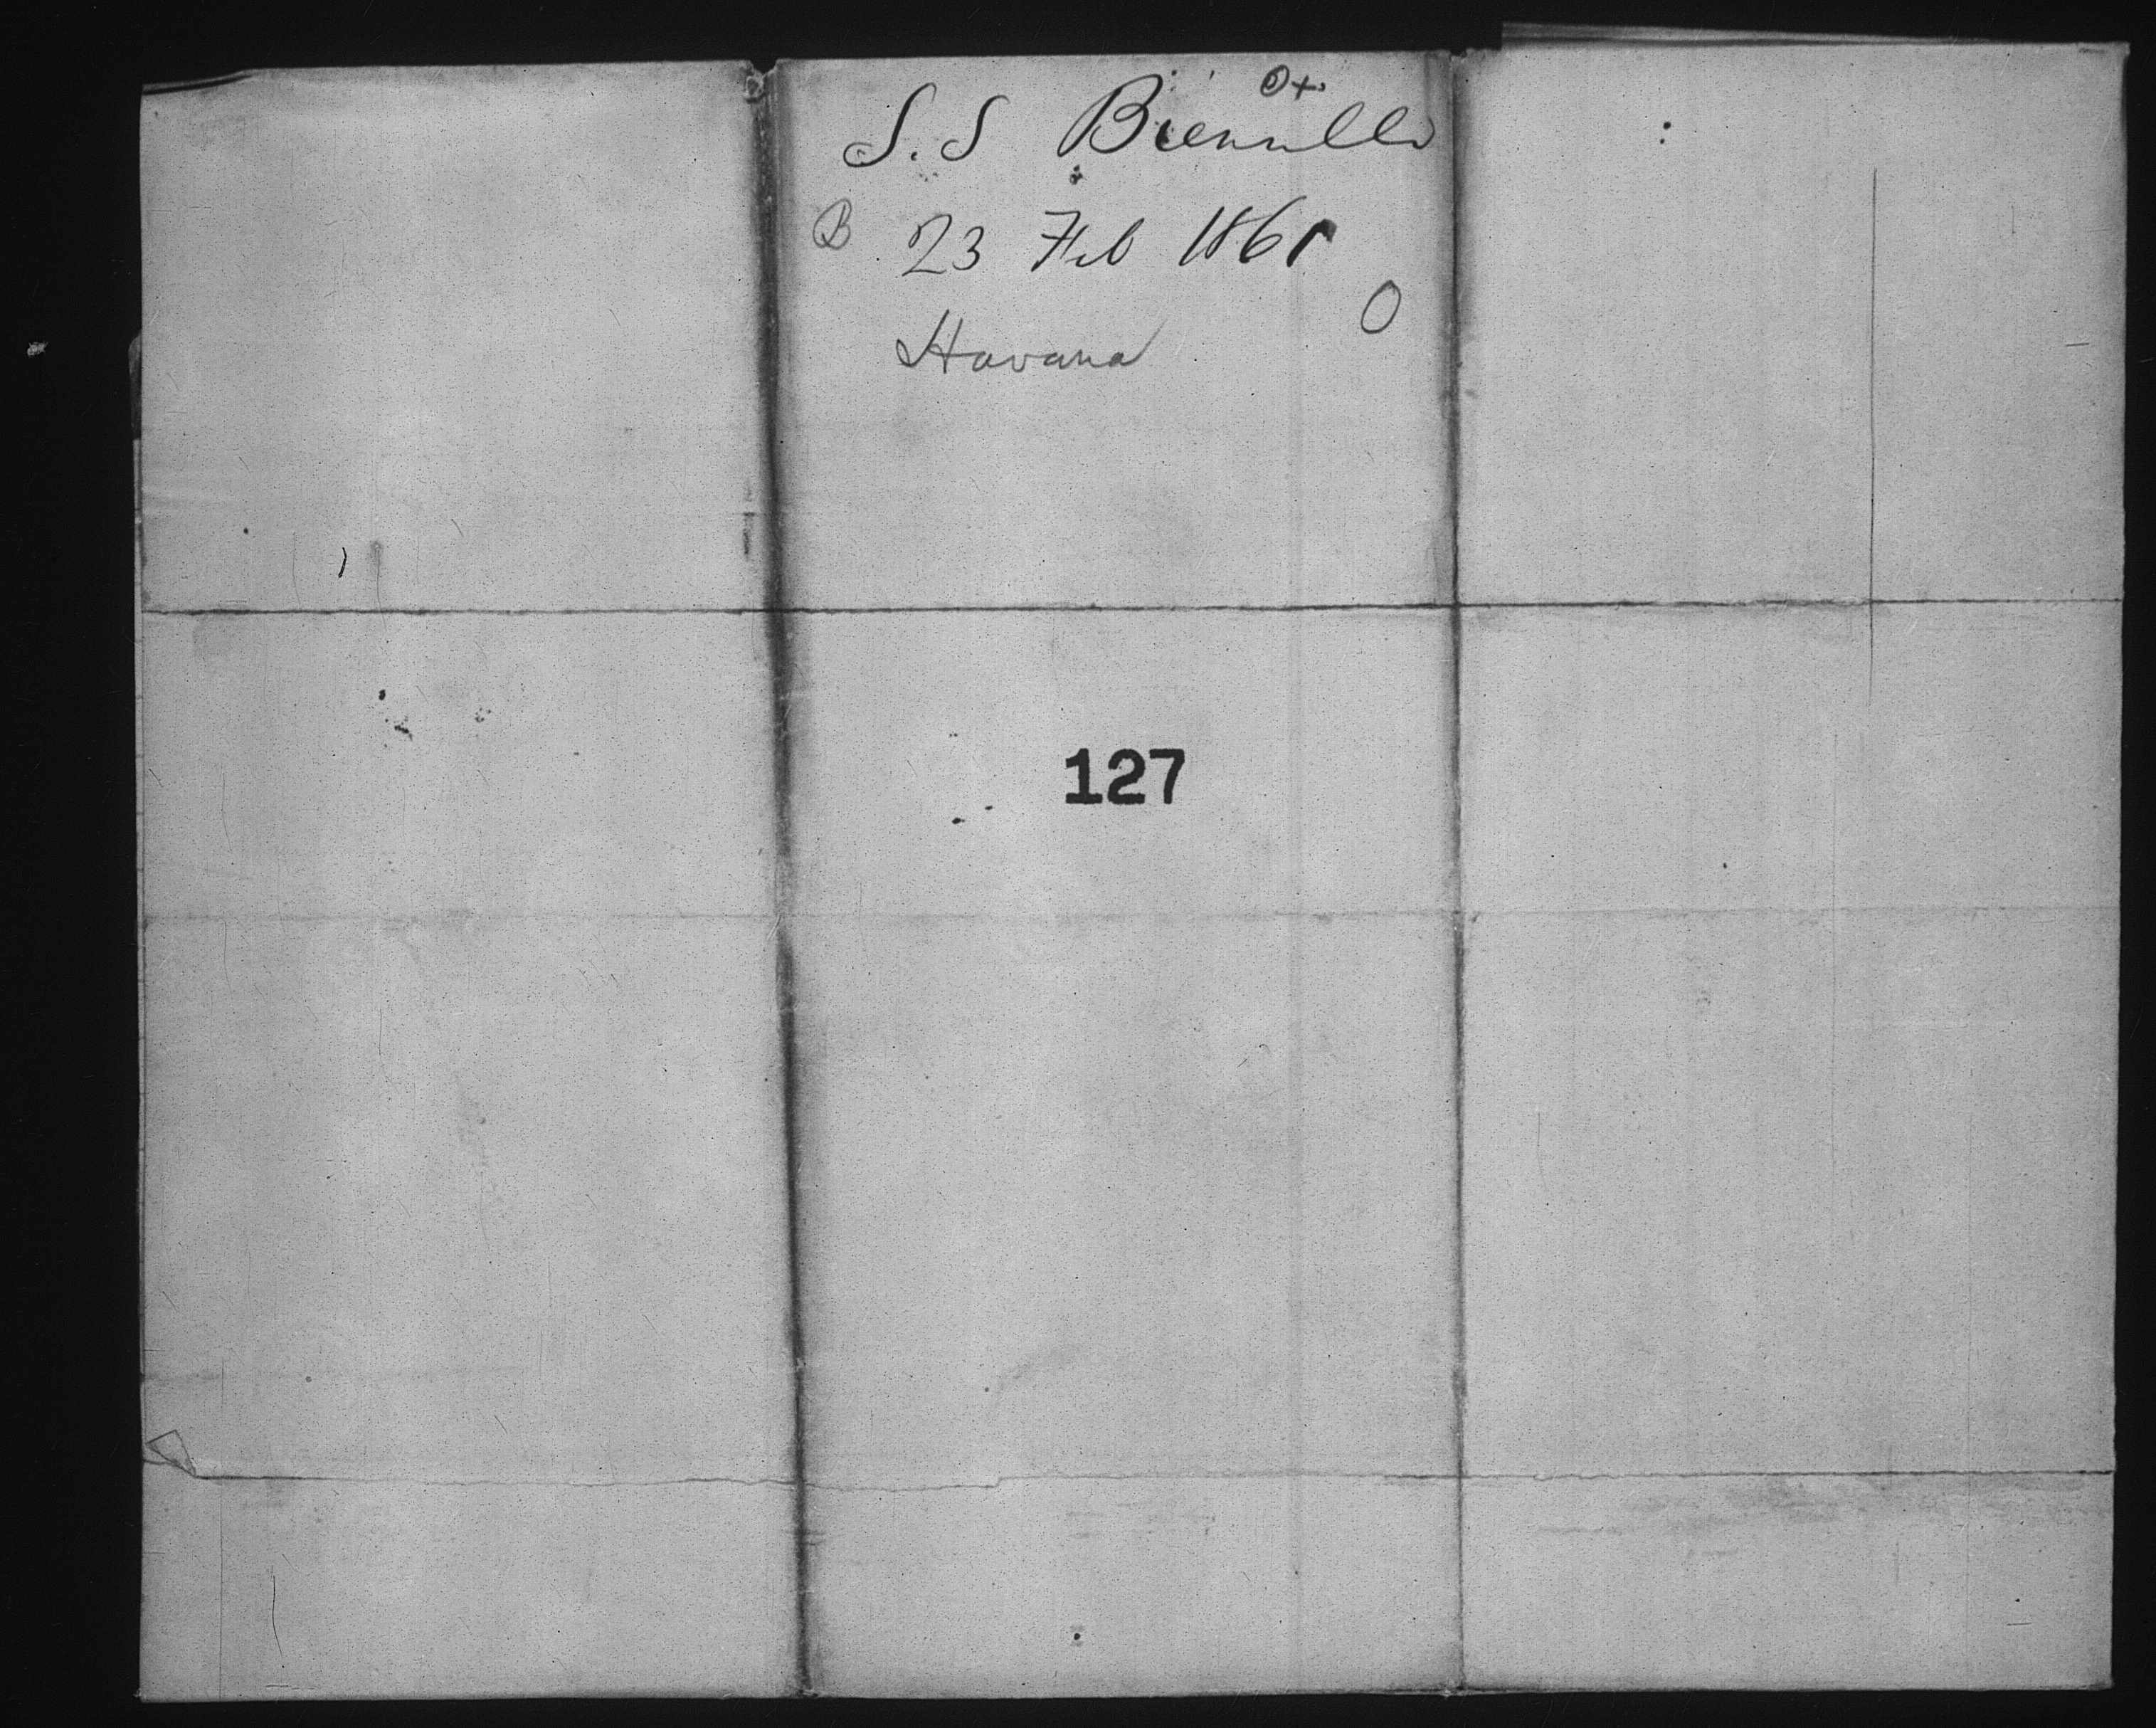 S.S Bienville
B 23 Feb 1861
O
Havana
127